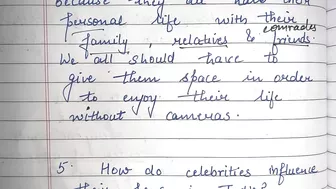 because they all have their
personal life with their
comrades
family, relatives & friends.
We all should have to
give them space in order
to enjoy their life
without cameras.
5. How do celebrities influence
their